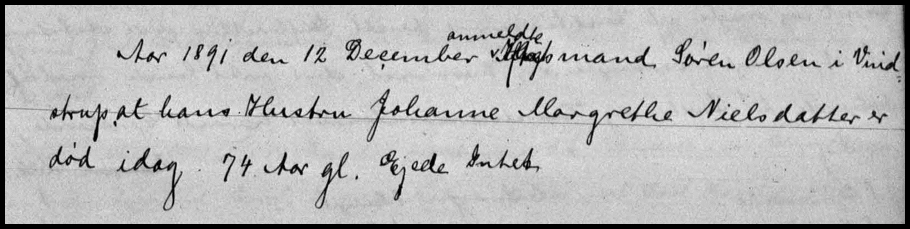 anmeldte
Aar 1891 den 12 December Aftægtsmand Søren Olsen i Vind-
strup, at hans Hustru Johanne Margrethe Nielsdatter er
død idag. 74 Aar gl. Ejede Intet